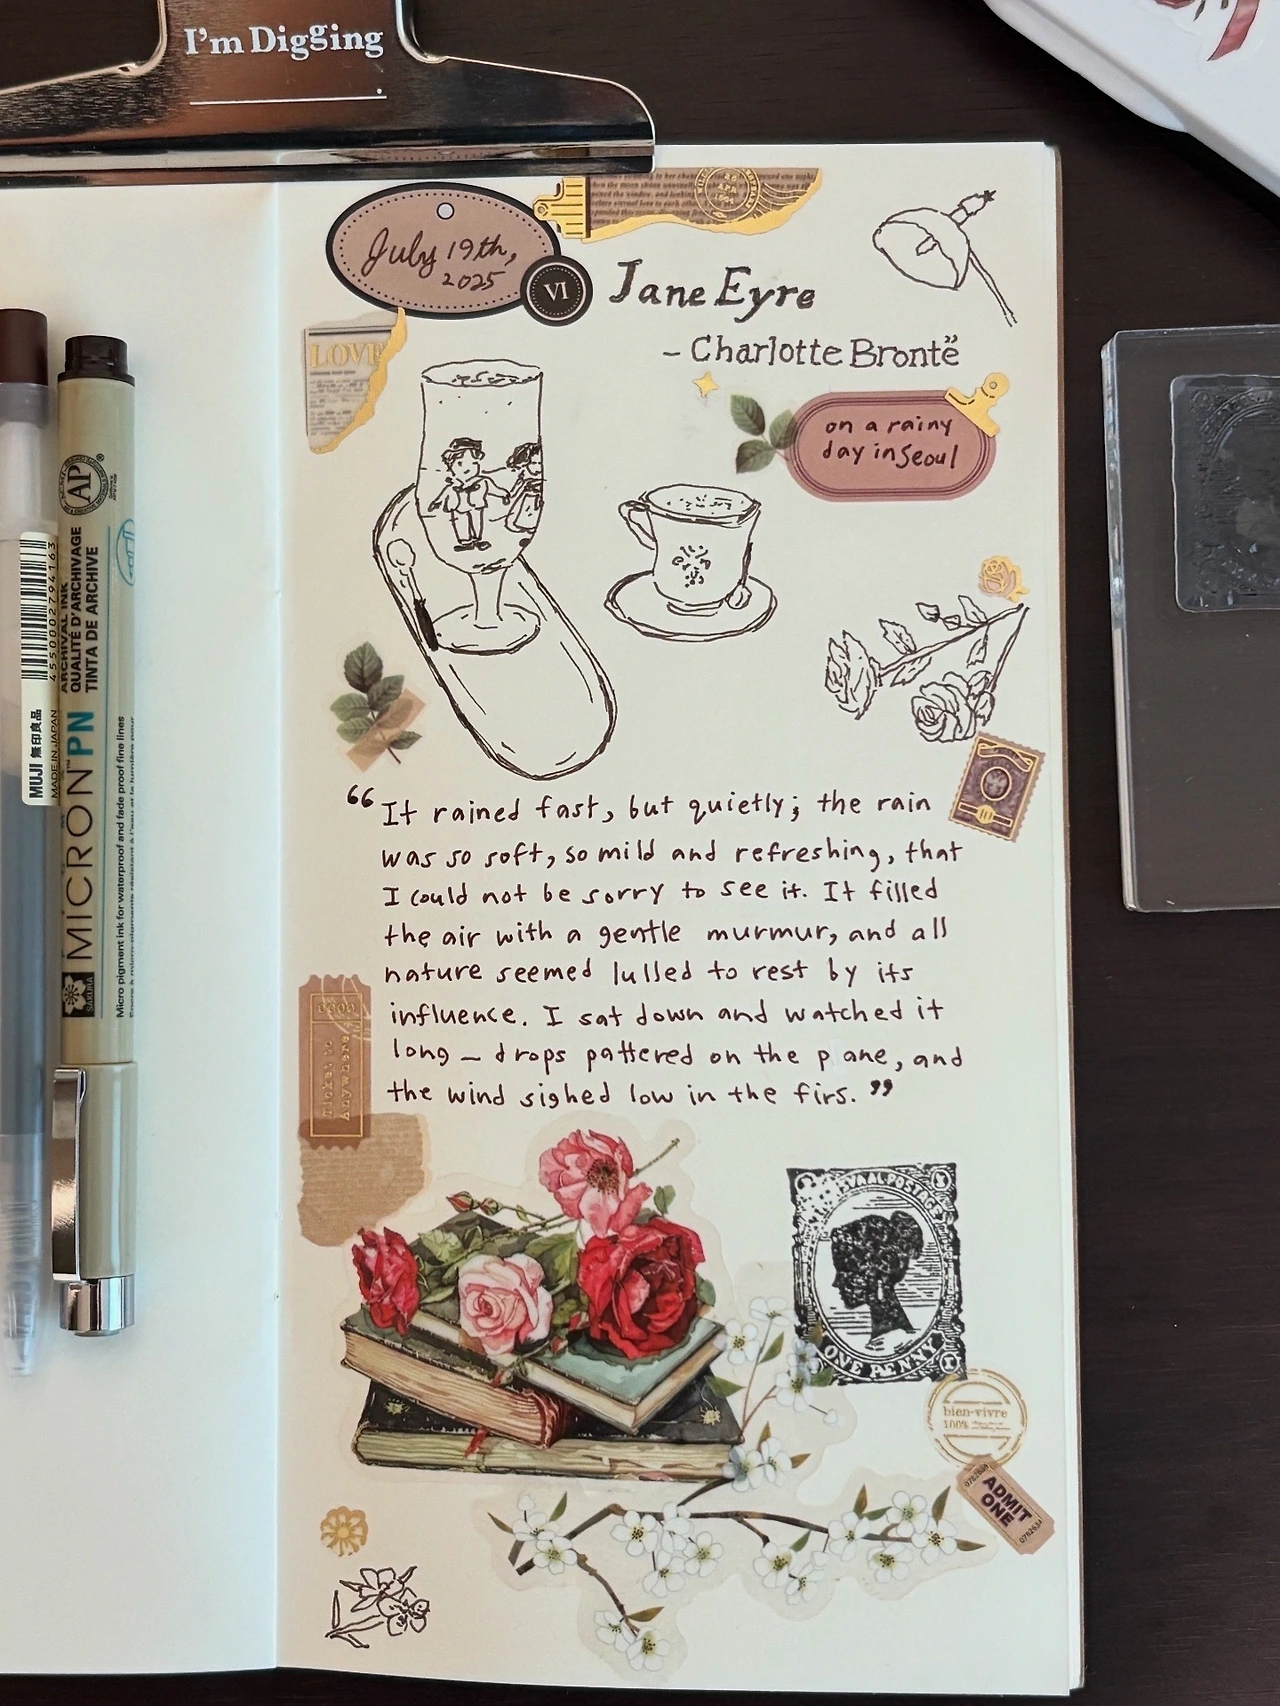 I'm Digging
July 19th,
2025
VI
Jane Eyre
- Charlotte Brontë
LOVE
on a rainy
day in Seoul
"It rained fast, but quietly; the rain
was so soft, so mild and refreshing, that
I could not be sorry to see it. It filled
the air with a gentle murmur, and all
nature seemed lulled to rest by its
influence. I sat down and watched it
long – drops pattered on the pane, and
the wind sighed low in the firs."
Ticket to
Anywhere
POSTAGE
ONE PENNY
bien-vivre
100%
ADMIT
ONE
0782634
AP
ARCHIVAL INK
QUALITÉ D'ARCHIVAGE
TINTA DE ARCHIVE
MICRON™ PN
Micro pigment ink for waterproof and fade proof fine lines
SAKURA
4550002794163
MUJI 無印良品
MADE IN JAPAN